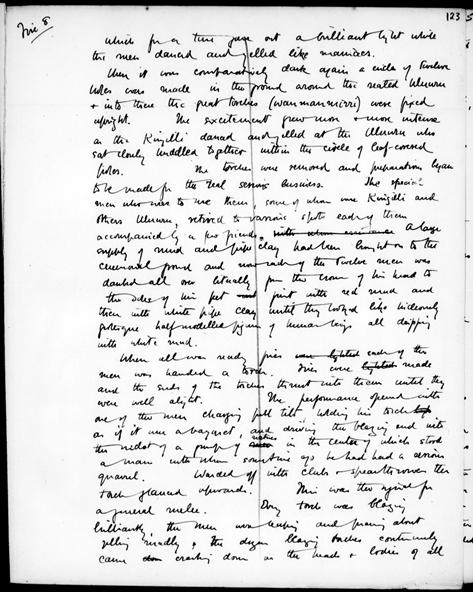 Fire 8
123
which for a time gave out a brilliant light while
the men danced and yelled like maniacs.
When it was comparatively dark again a circle of twelve
holes was made in the ground around the seated Uluuru
+ into these the great torches (wanmanmirri) were fixed
upright. The excitement grew more + more intense
as the Kingilli danced and yelled at the Uluuru who
sat closely huddled together within the circle of leaf-covered
poles. The torches were removed and preparations began
to be made for the real serious business. The special
men who were to use them, some of whom were Kingilli and
others Uluuru, retired to various spots each of them
accompanied by a few friends. A large
supply of mud and pipe clay had been brought on to the
ceremonial ground and now each of the twelve men was
daubed all over literally from the crown of his head to
the soles of his feet first with red mud and
then with white pipe clay until they looked like hideously
grotesque half modelled figures of human beings all dripping
with white mud.
When all was ready fires were lighted each of the
men was handed a torch. Fires were lighted made
and the ends of the torches thrust into them until they
were well alight. The performance opened with
one of the men charging full tilt, holding his torch
as if it were a bayonet, and driving the blazing end into
the midst of a group of natives in the center of which stood
a man with whom some time ago he had had a serious
quarrel. Warded off with clubs + spearthrowers the
torch glanced upwards. This was the signal for
a general melee. Every torch was blazing
brilliantly, the men were leaping and prancing about
yelling madly + the dozen blazing torches continually
came down crashing down on the heads + bodies of all